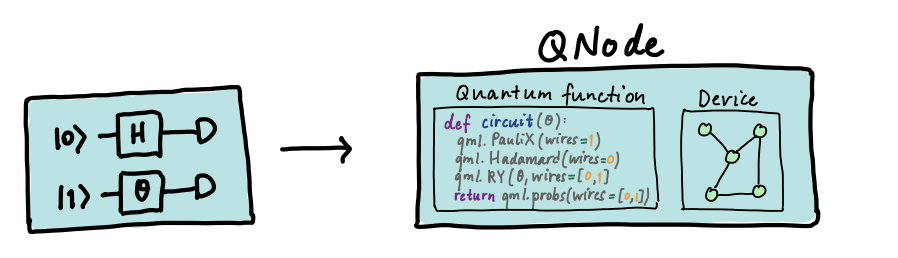 QNode
|0⟩ H
|1⟩ θ
Quantum function
def circuit(θ):
qml.PauliX(wires=1)
qml.Hadamard(wires=0)
qml.RY(θ, wires=[0,1]
return qml.probs(wires=[0,1])
Device